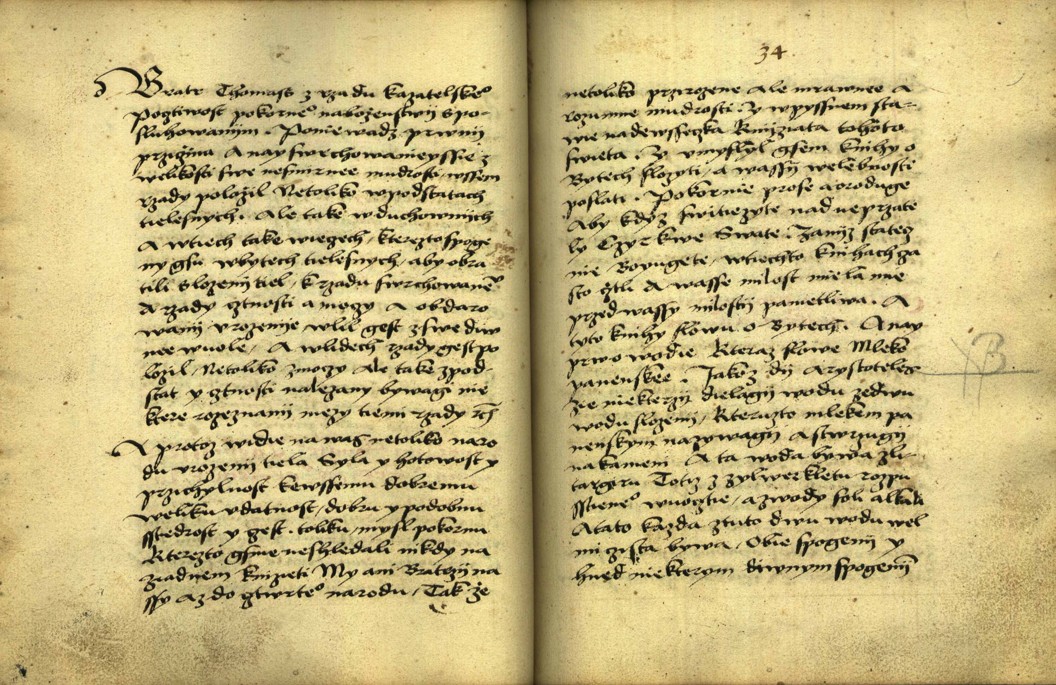 Bratr Thomass z rzadu kazatelskeo
Pogtiwost pokorneo nabozenstwij spo-
sluhowanijm. Poniewadz prwnij
przicżina A nayswrchowaneyssie z
welikosti swe nesmirnee mudrosti wssem
rzady polozil Netoliko w podstatach
tielesnych. Ale take w duchownijch
A wtiech take wiegech, kterezto spoge
ny gsu w bytech tielesnych, aby obra
tili slozenij tiel, k rzadu swrchowaneo
A rzady cztnosti a moczy A obdaro
wanij vrozenije wlil gest z swe diw
nee wuole, A w lidech rzady gest po
lozil, Netoliko z moczy Ale take z pod-
stat y cztnosti nalezany bywagi nie
ktere rozeznanij mezy tiemi rzady
A protoz widie na was netoliko naro
du vrozenij tiela Syla y hotowost y
przichylnost kewssemu dobremu
weliku vdatnost, dobru y podobnu
sstiedrost y gest toliku, mysl pokornu
Kterezto gsme neshledali nikdy na
zradnem knizieti My ani Bratrzij na
ssy az do cztwrteo narodu, Tak ze
34
netoliko przirozene Ale mrawnee A
rozumne mudrosti. Y wpyssnem sta-
wie nadewsseczka Knijzata tohoto
swieta. Y vmyslyl gsem knihy o
Bytech slozyti, a wassij welebnosti
poslati. Pokornie prose a oroduge
Aby kdyz switiezyte nad neprzate
ly Czyrkwe Swate. Janijz stateg
nie Boyugete, w tiechto knihach cza
sto cztli A wasse milost miela mie
przed wassy milostij pametliwa. A
tyto knihy slowu o Bytech. A nay
prwo wodie Kteraz slowe Mleko
panenskee. Jakoz dij Arystoteles
ze niekterzij dielagij wodu ze dwu
wodu slozenij, Kteruzto mlekem pa
nenskym nazywagij A stwrzugij
na kameni. A ta woda bywa z li-
targyru Totiz z zylwerkletu rozpu
sstieneo w uoctie, a z wody soli alkali
A tato kazda z tuto dwu wodu wel
mi czysta bywa, Obie spogenij y
hned niekterym diwnym spogenijm
B